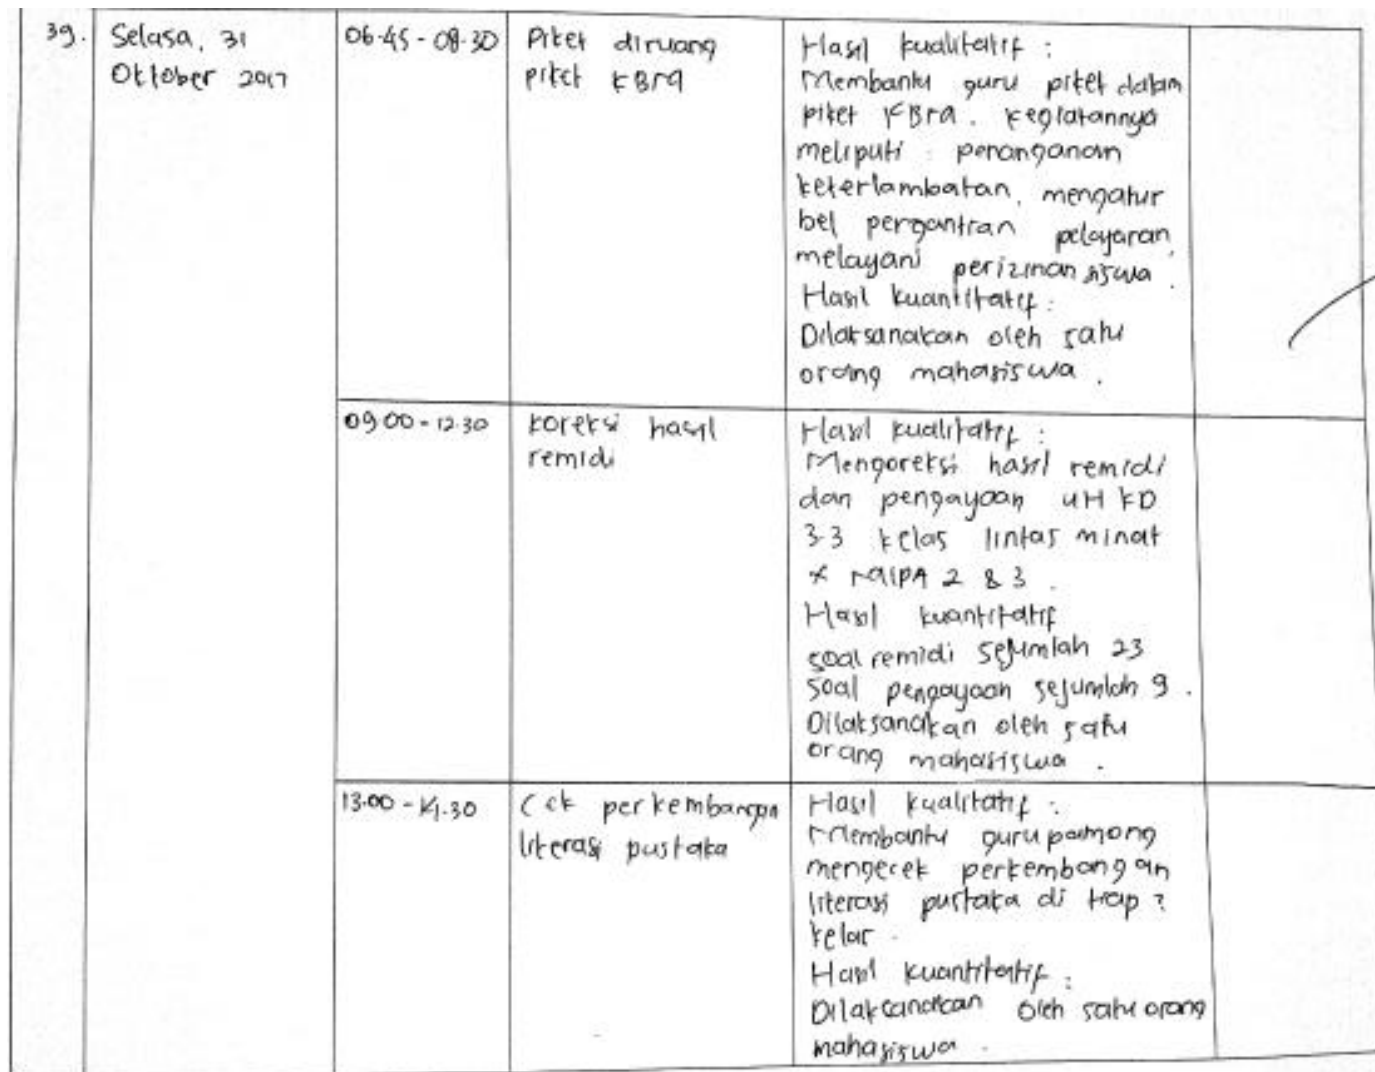 39.
Selasa, 31
Oktober 2017
06.45 - 08.30
Piket diruang
piket KBM
Hasil kualitatif :
Membantu guru piket dalam
piket KBM. Kegiatannya
meliputi : penanganan
keterlambatan, mengatur
bel pergantian pelajaran,
melayani perizinan siswa.
Hasil kuantitatif :
Dilaksanakan oleh satu
orang mahasiswa.
09.00 - 12.30
Koreksi hasil
remidi
Hasil kualitatif :
Mengoreksi hasil remidi
dan pengayaan UH KD
3.3 kelas lintas minat
X MIPA 2 & 3.
Hasil kuantitatif
soal remidi sejumlah 23
soal pengayaan sejumlah 9.
Dilaksanakan oleh satu
orang mahasiswa.
13.00 - 14.30
Cek perkembangan
literasi pustaka
Hasil kualitatif :
Membantu guru pamong
mengecek perkembangan
literasi pustaka di tiap2
kelas.
Hasil kuantitatif :
Dilaksanakan oleh satu orang
mahasiswa.